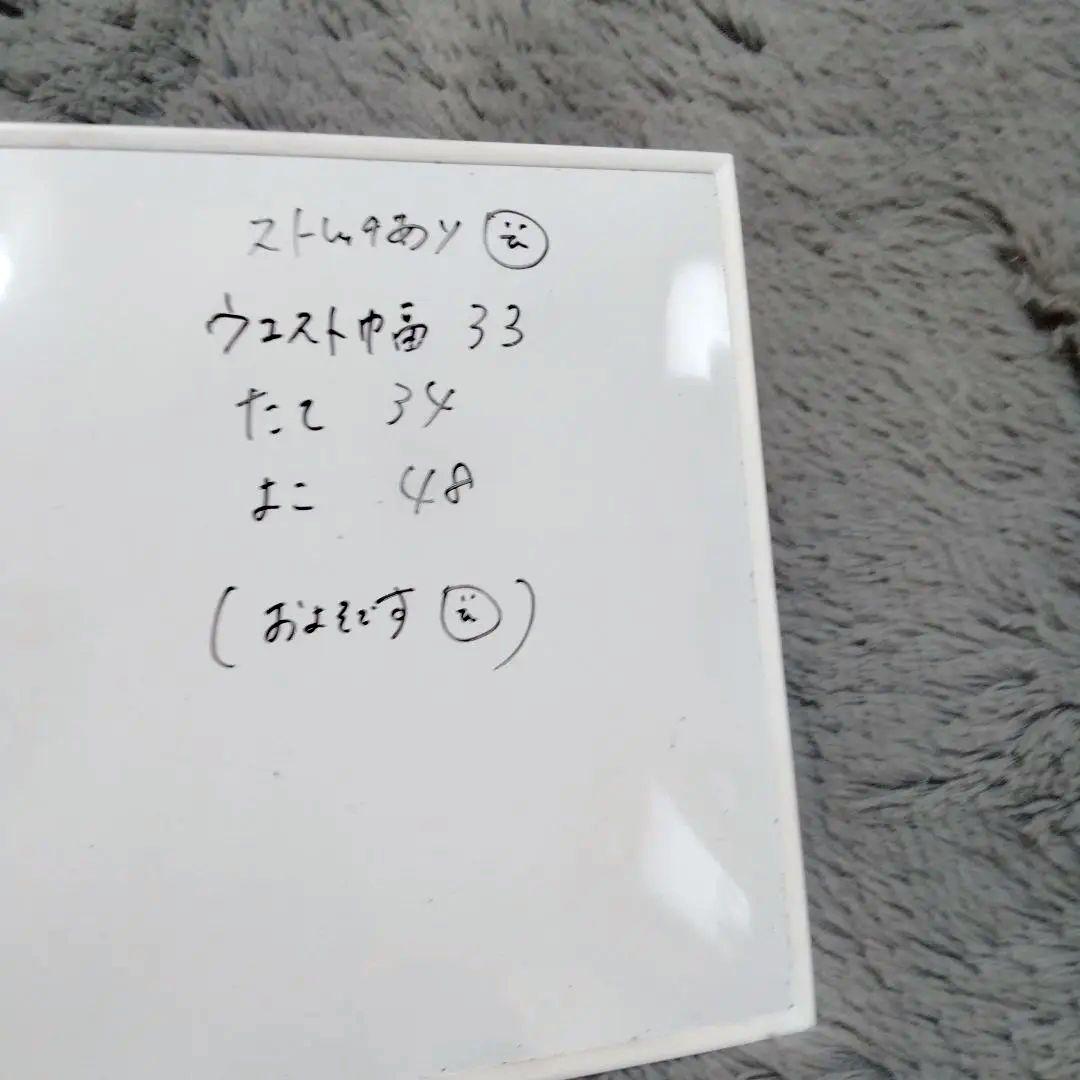 ストレッチあり
ウエスト巾幅 33
たて 34
よこ 48
(およそです)